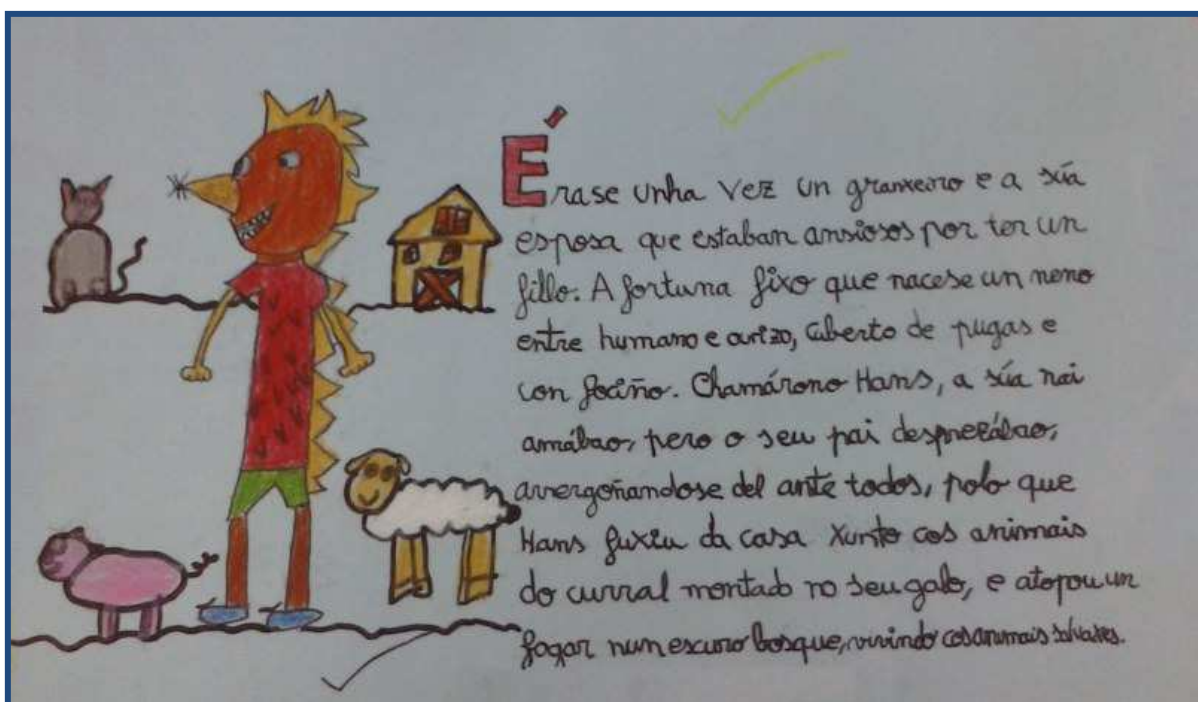 Érase unha vez un granxeiro e a súa
esposa que estaban ansiosos por ter un
fillo. A fortuna fixo que nacese un neno
entre humano e ourizo, cuberto de pugas e
con fociño. Chamárono Hans, a súa nai
amábao, pero o seu pai desprezábao,
avergoñandose del ante todos, polo que
Hans fuxiu da casa xunto cos animais
do curral montado no seu galo, e atopou un
fogar nun escuro bosque, vivindo cos animais salvaxes.